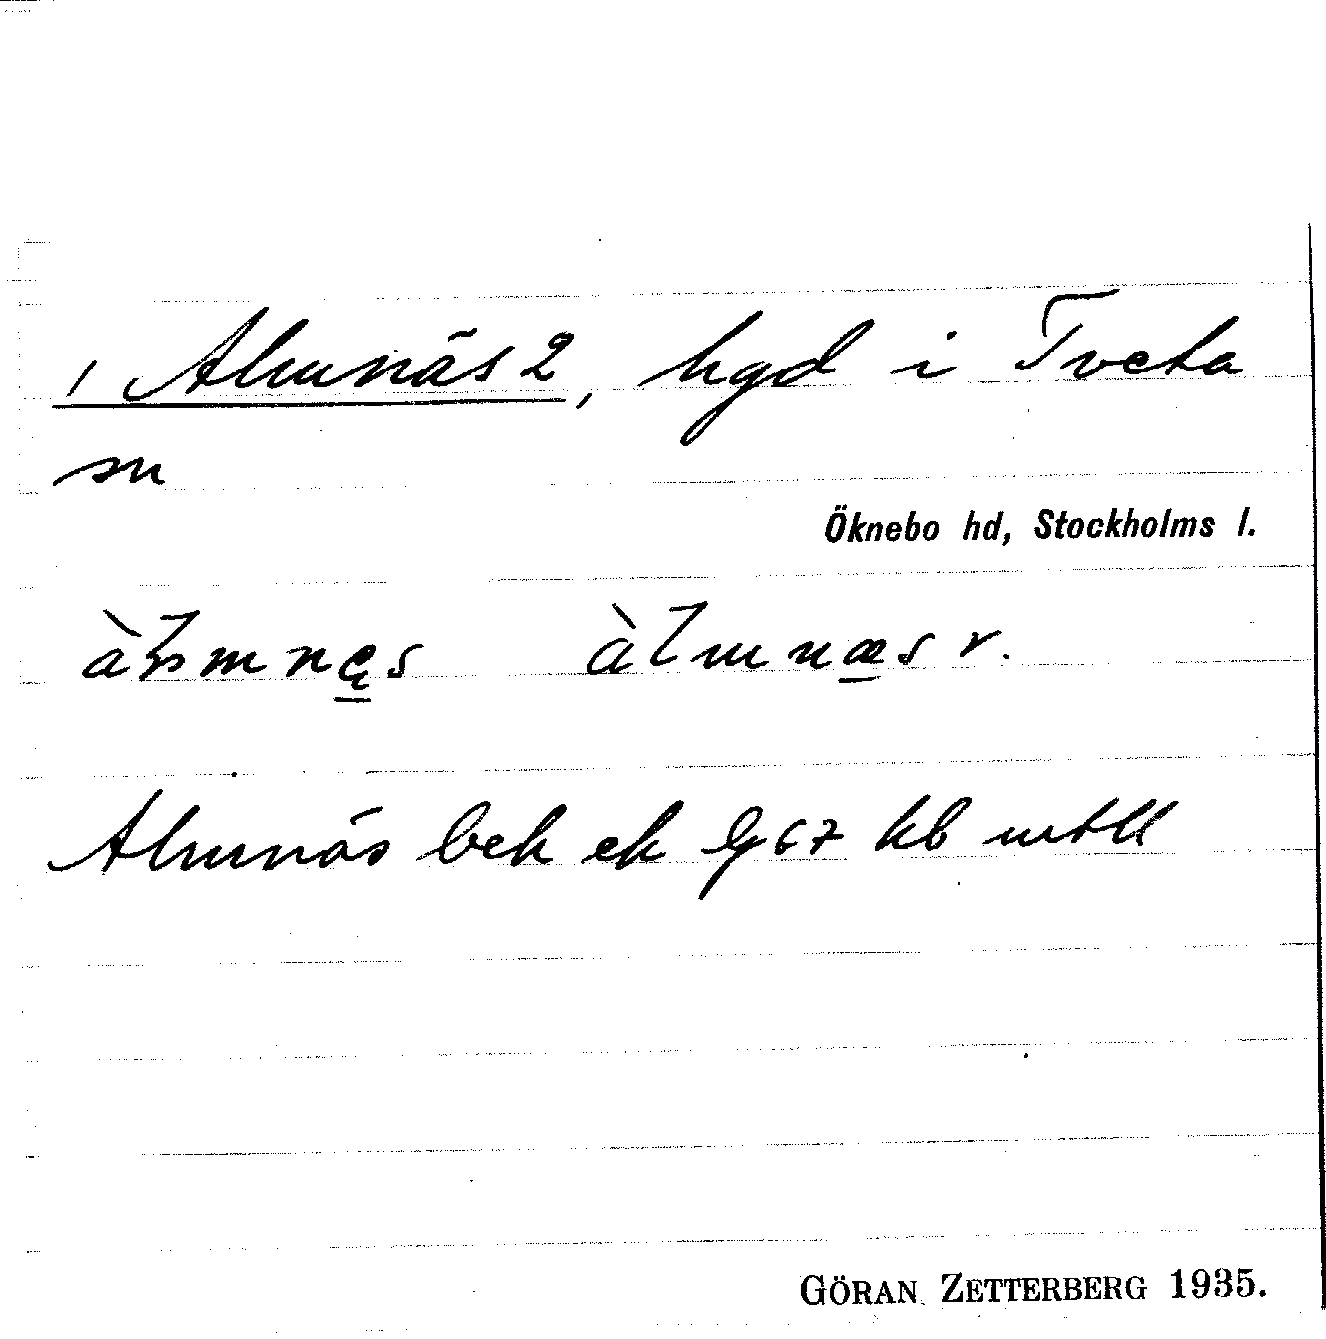 1 Almnäs 2, hgd i Tveta
sn
Öknebo hd, Stockholms l.
àlmnæs r.
Almnäs bek ek G 67 kb mtll
GÖRAN ZETTERBERG 1935.